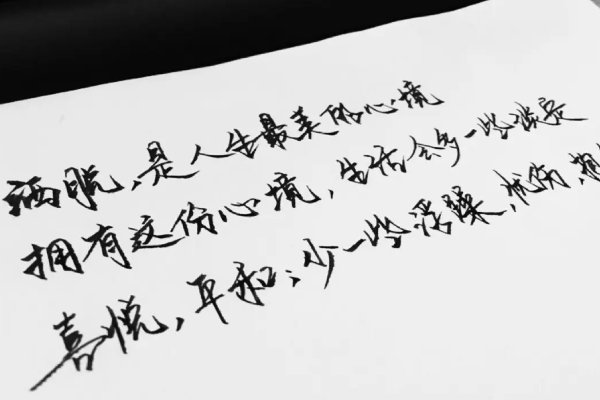 洒脱,是人生最美的心境
拥有这份心境,生活会多一些
喜悦,平和;少一些浮躁,忧伤,